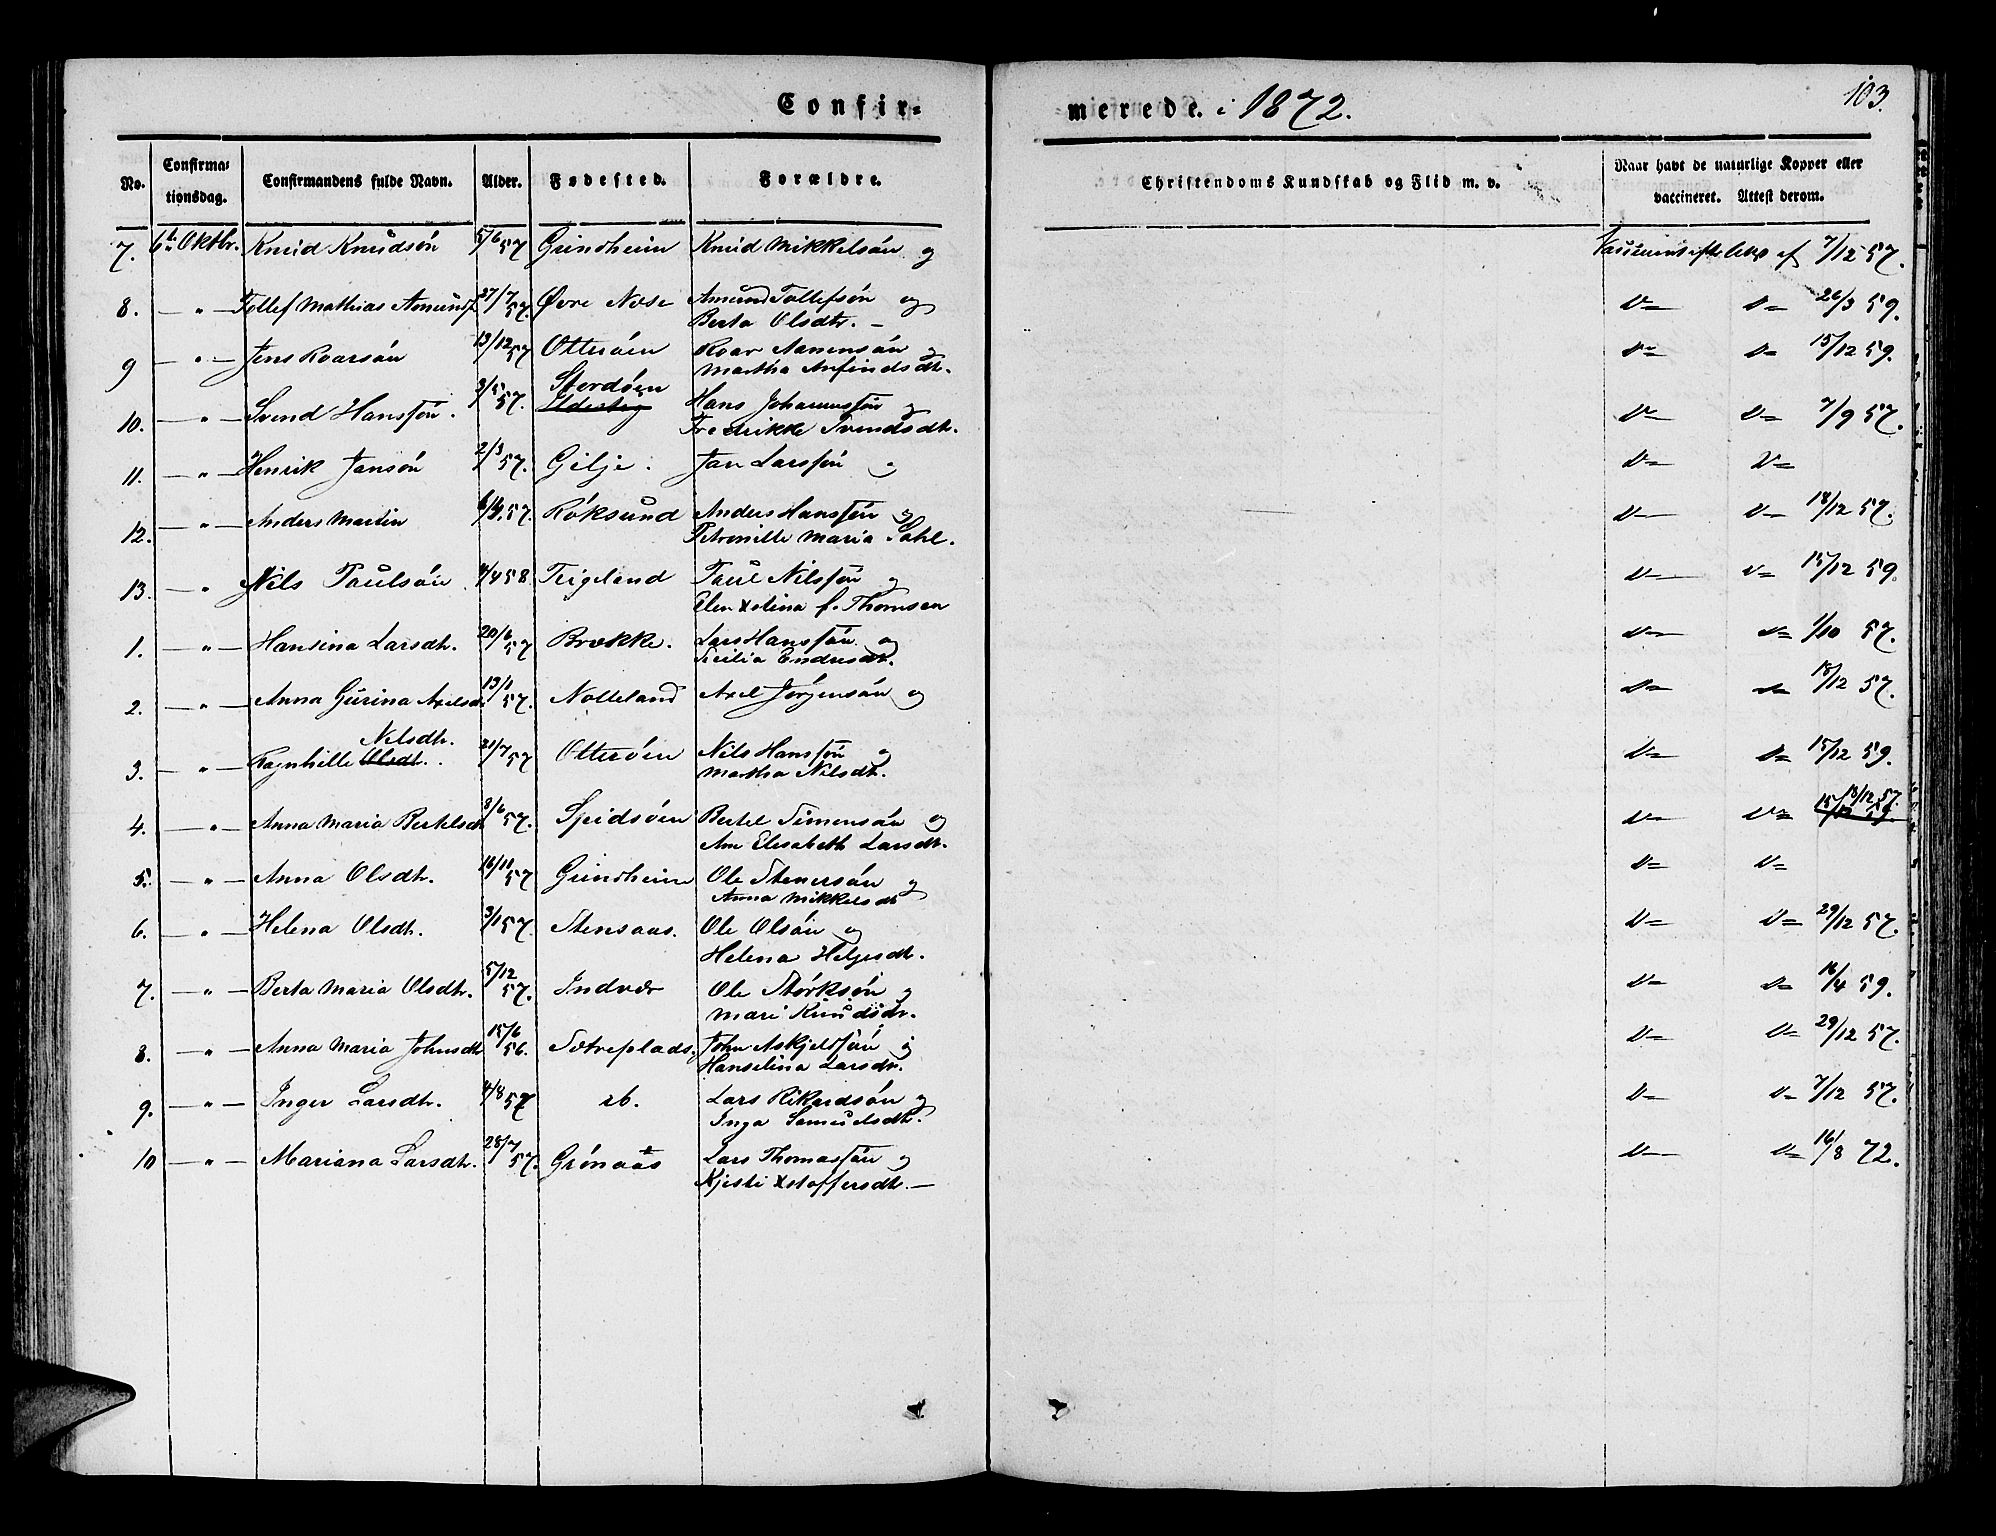 Confir-
merede. i 1872.
103.
No.
Confirma-
tionsdag.
Confirmandens fulde Navn.
Alder.
Fødested.
Forældre.
Christendoms Kundskab og Flid m. v.
Naar havt de naturlige Kopper eller
vaccineret. Attest derom.
7. 6te Oktbr. Knud Knudsón 5/6 57 Grindheim Knud Mikkelsón og 7/12 57.
8. — " — Tollef Mathias Amunds. 27/7 57. Øvre Næse Amund Tollefsón og
Berta Olsdtr. —
D= D= 26/3 59.
9 — " — Jens Roarsón 13/12 57 Otterøen Roar Aanensón og
Martha Anfindsdtr.
D= D= 15/12 59.
10. — " — Svend Hanssón. 3/5 57. Stordøen Hans Johannessón og
Fredrikke Svendsdtr.
D= D= 7/9 57.
11. — " — Henrik Jansón 2/3 57. Gilje. Jan Larssón og
D= D=
12. — " — Anders Martin 57. Röksund Anders Hanssón og
Petronille Maria Dahl.
D= D= 18/12 57.
13. — " — Nils Paulsón 4/4 58. Teigeland Paul Nilssón og
Elen Xstina f. Thomsen
D= D= 15/12 59.
1. — " — Hansina Larsdtr. 20/6 57 Brække. Lars Hanssón og
Sicilia Endresdtr.
D= D= 1/10 57.
2. — " — Anna Gurina Axelsdtr. 13/1 57. Nolteland Axel Jörgensón og
D= D= 18/12 57.
Nilsdtr.
3. — " — Ragnhille Olsdt. 21/7 57 Otterøen Nils Hanssón og
Martha Nilsdtr.
D= D= 15/12 59.
4. — " — Anna Maria Bertelsdtr. 8/6 57. Spidsöen Bertel Simensón og
Ane Elisabeth Larsdtr.
D= D= 18/12 57.
15/12 59.
5. — " — Anna Olsdtr. 16/11 57 Grindheim Ole Stenersón og
Anna Mikkelsdt
D= D=
6. — " — Helena Olsdtr. 3/1 57. Stensaas. Ole Olsón og
Helena Helgesdtr.
D= D= 29/12 57.
7. — " — Berta Maria Olsdtr. 5/12 57. Indvær Ole Störksón og
Mari Knudsdtr.
D= D= 16/4 59.
8. — " — Anna Maria Johnsdtr. 15/6 56. Sætreplads. John Askjeldsón og
Hanselina Larsdtr.
D= D= 29/12 57.
9. — " — Inger Larsdtr. 4/8 57 ib. Lars Rikardsón og
Inga Samuelsdtr.
D= D= 7/12 57.
10 — " — Mariana Larsdtr. 28/7 57. Grönaas Lars Thomassón og
Kjesti Xstoffersdtr. —
D= D= 16/8 72.